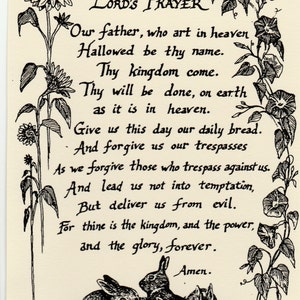 LORD'S PRAYER
Our father, who art in heaven
Hallowed be thy name.
Thy kingdom come.
Thy will be done, on earth
as it is in heaven.
Give us this day our daily bread.
And forgive us our trespasses
As we forgive those who trespass against us.
And lead us not into temptation,
But deliver us from evil.
For thine is the kingdom, and the power,
and the glory, forever.
Amen.